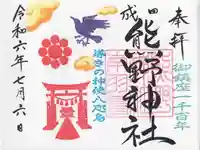 奉拝
御鎮座一千百年
四
成
熊野神社
導きの神使八咫烏
令和六年七月六日